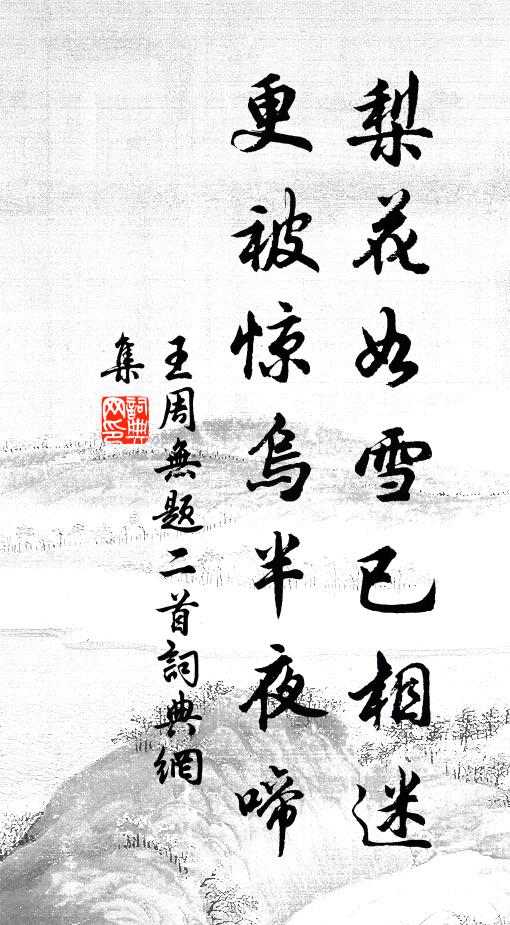 梨花如雪已相迷
更被惊烏半夜啼
王周無题二首詞典網
集
詞典網印